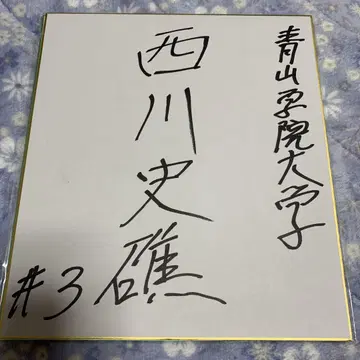 青山学院大学
西川史礁
#3